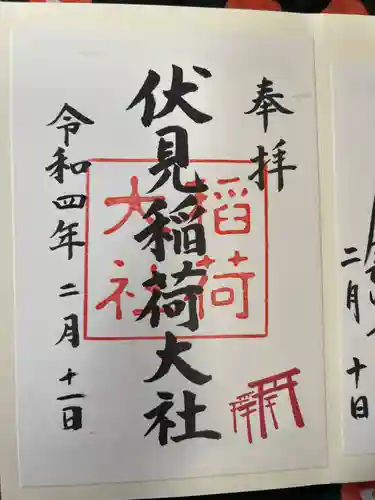 奉拝
伏見稲荷大社
稲荷
大社
令和四年二月十一日
二月十日